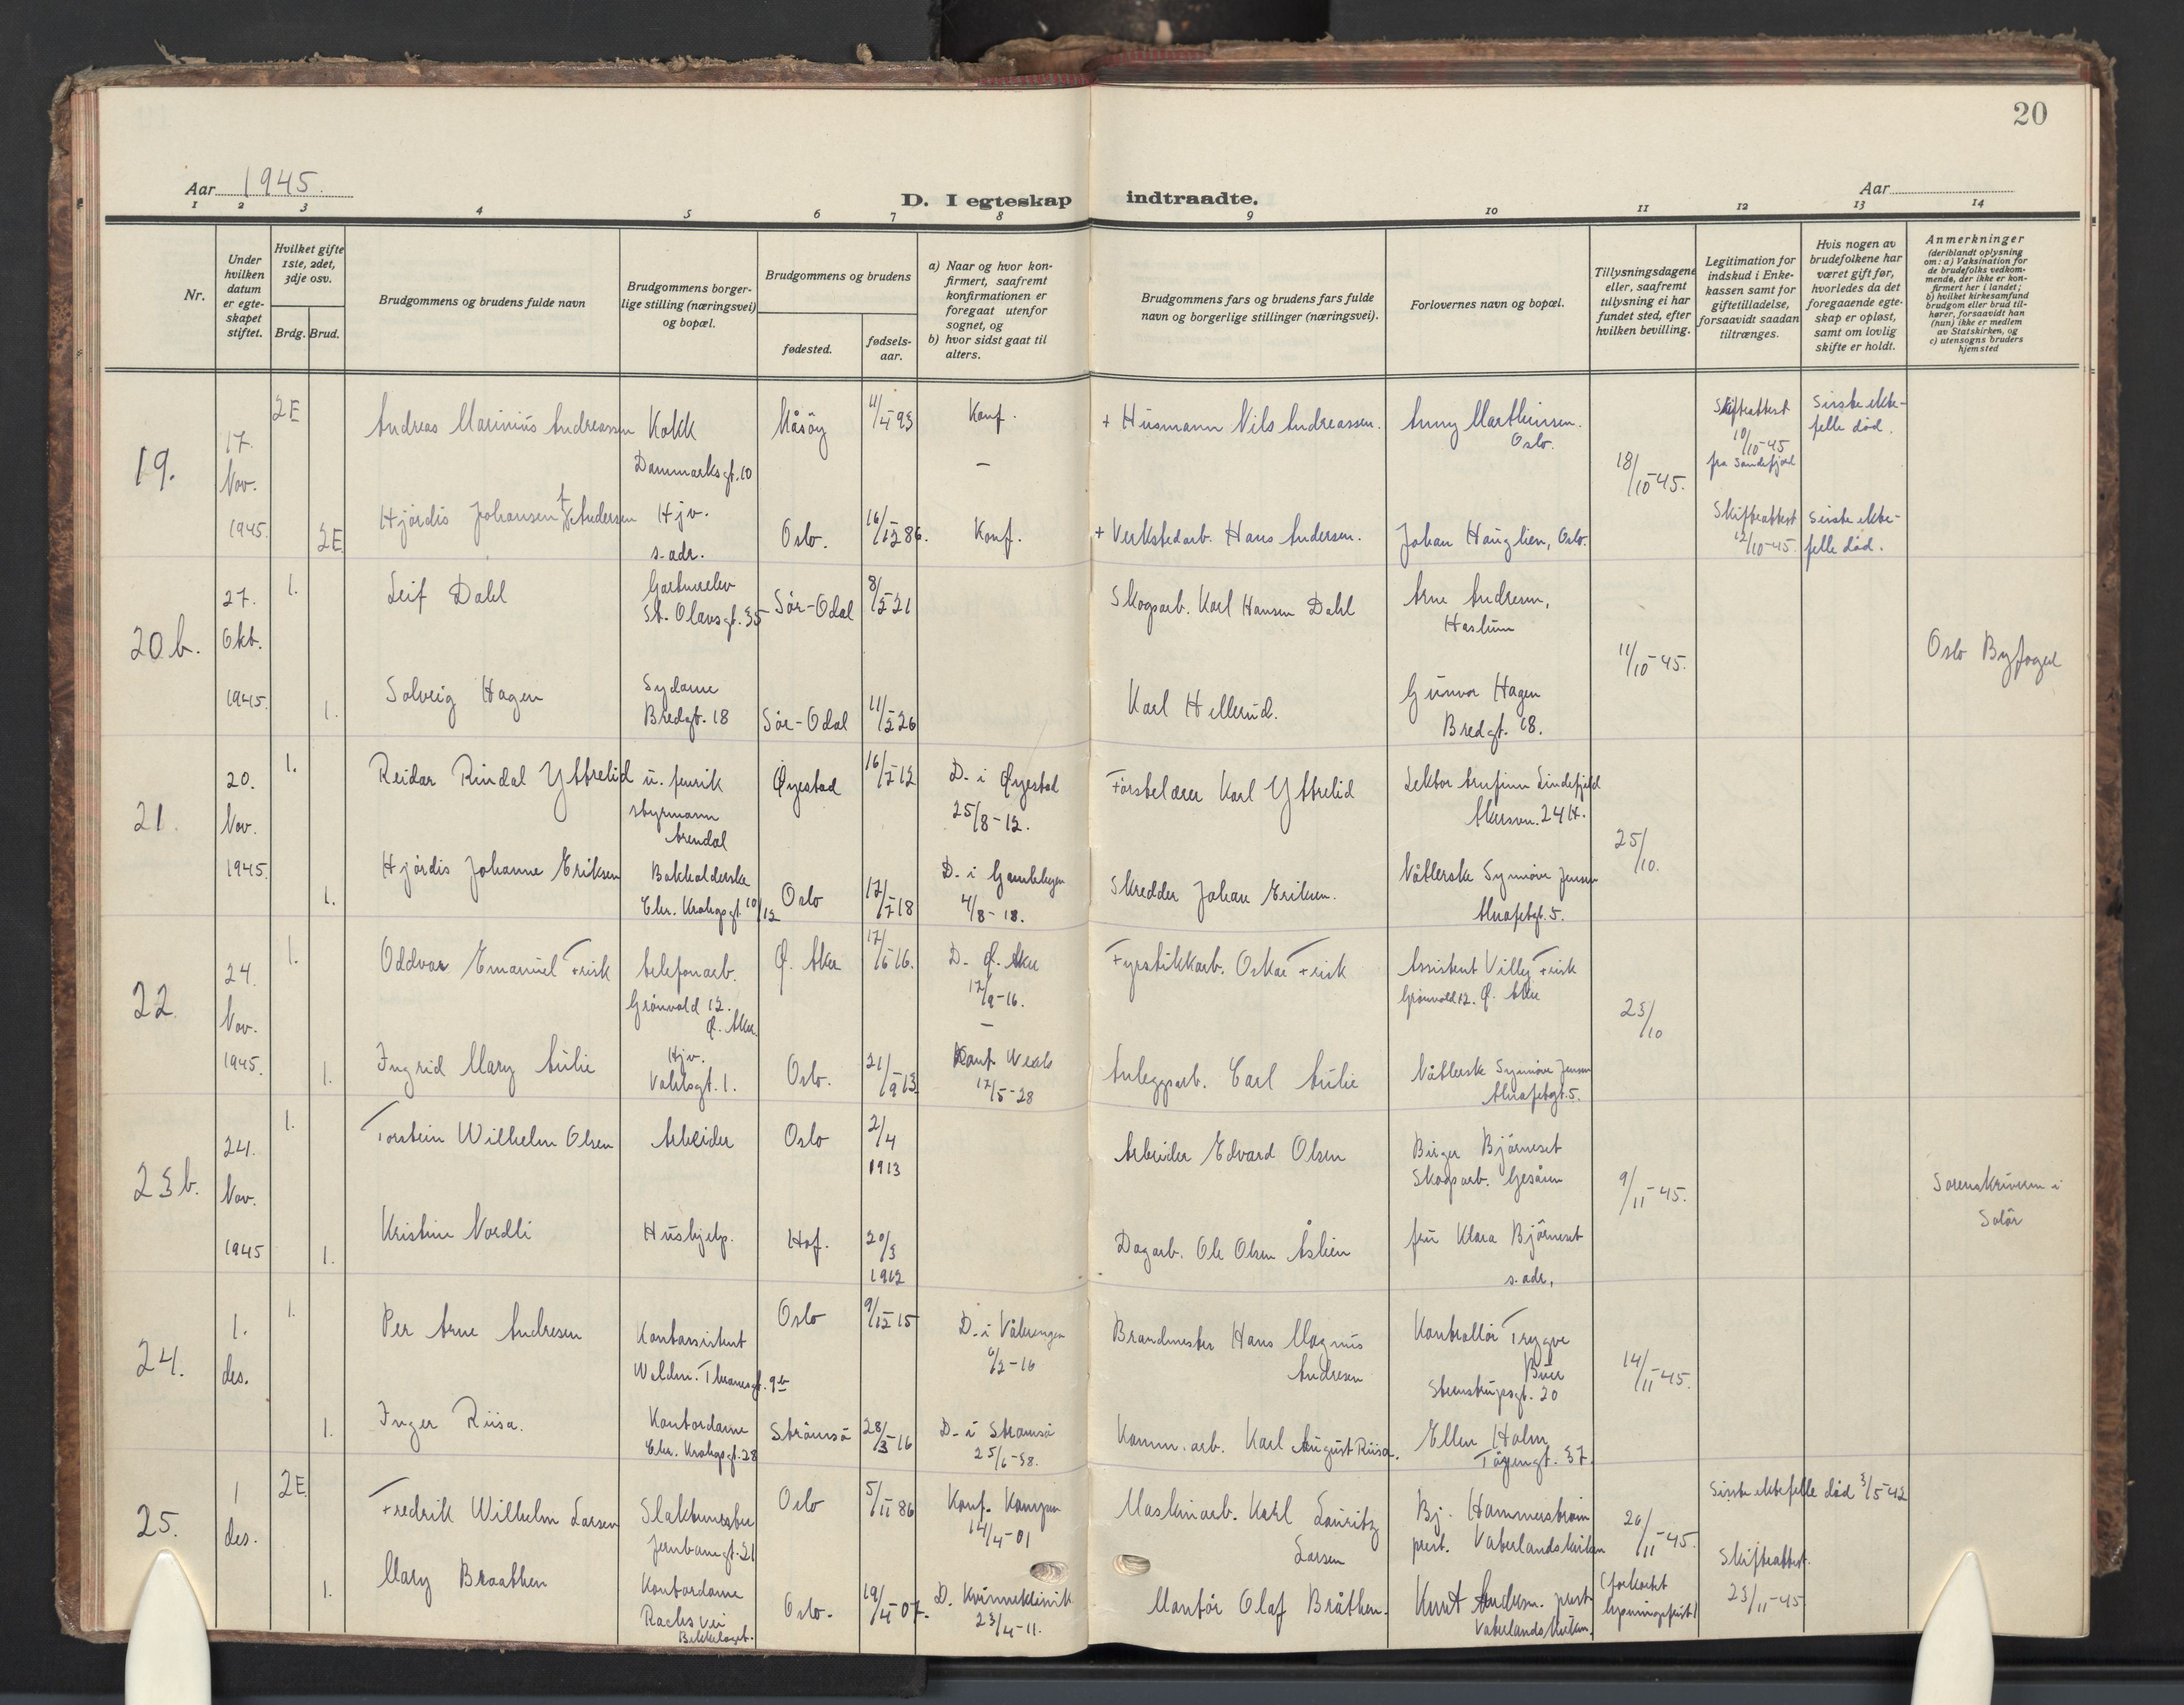 20
Aar 1945.
D. I egteskap indtraadte.
Aar
1 2 3 4 5 6 7 8 9 10 11 12 13 14
Nr.
Under hvilken datum er egteskapet stiftet.
Hvilket gifte 1ste, 2det, 3dje osv.
Brdg. Brud.
Brudgommens og brudens fulde navn
Brudgommens borgerlige stilling (næringsvei) og bopæl.
Brudgommens og brudens
fødested.
fødselsaar.
a) Naar og hvor konfirmert, saafremt konfirmationen er foregaat utenfor sognet, og
b) hvor sidst gaat til alters.
Brudgommens fars og brudens fars fulde navn og borgerlige stillinger (næringsvei).
Forlovernes navn og bopæl.
Tillysningsdagene eller, saafremt tillysning ei har fundet sted, efter hvilken bevilling.
Legitimation for indskud i Enkekassen samt for giftetilladelse, forsaavidt saadan tiltrænges.
Hvis nogen av brudefolkene har været gift før, hvorledes da det foregaaende egteskap er opløst, samt om lovlig skifte er holdt.
Anmerkninger (deriblandt oplysning om: a) Vaksination for de brudefolks vedkommende, der ikke er konfirmert her i landet; b) hvilket kirkesamfund brudgom eller brud tilhører, forsaavidt han (hun) ikke er medlem av Statskirken, og c) utensogns bruders hjemsted
19.
17. Nov. 1945.
2E
Andreas Marinius Andreassen
Kokk
Danmarksgt. 10
Måsøy
11/4-93
Konf.
–
+ Husmann Nils Andreassen.
Anny Marthinsen.
Oslo.
18/10-45.
Skifteattest
10/10-45
fra Sandefjord
Siste ekte-
felle død.
2E
Hjördis Johansen f. Andersen
Hjv.
s. adr.
Oslo.
16/12 86.
Konf.
+ Verkstedarb. Hans Andersen.
Johan Hauglien, Oslo.
Skifteattest
12/10-45.
Siste ekte-
felle død.
20 b.
27. Okt. 1945.
1.
Leif Dahl
Gartnerelev
St. Olavsgt. 35
Sör-Odal
8/2 21
Skogsarb. Karl Hansen Dahl
Arne Andresen,
Haslum
11/10-45.
Oslo Byfoged
1.
Solveig Hagen
Sydame
Bredgt. 18
Sör-Odal
11/2 26
Karl Hellerud.
Gunvor Hagen
Bredgt. 18.
21.
20. Nov. 1945.
1.
Reidar Rindal Yttrelid
u. fenrik
styrmann
Arendal
Øyestad
16/7 12
D. i Øyestad
25/8-12.
Förstelærer Karl Yttrelid
Lektor Arnfinn Lindefjeld
Akersvn. 24 H.
25/10.
1.
Hjördis Johanne Eriksen
Bokholderske
Chr. Krohgsgt. 10/12
Oslo
17/7 18
D. i Gamlebyen
4/8-18.
Skredder Johan Eriksen.
Nåtlerske Synnöve Jensen
Alnafetgt. 5.
22.
24. Nov. 1945.
1.
Oddvar Emanuel Frisk
telefonarb.
Grönvold 12.
Ø. Aker.
Ø. Aker
17/6 16.
D. Ø. Aker
17/9-16.
–
Fyrstikkarb. Oskar Frisk
Assistent Villy Frisk
Grönvold 12. Ø. Aker
23/10
1.
Ingrid Mary Aulie
Hjv.
Vahlsgt. 1.
Oslo.
21/9 13
Konf.
17/5-28
Anleggsarb. Carl Aulie
Nåtlerske Synnöve Jensen
Alnafetgt. 5.
23 b.
24. Nov. 1945
1.
Torstein Wilhelm Olsen
Arbeider
Oslo
2/4
1913
Arbeider Edvard Olsen
Birger Björneset
Skogsarb. Gesåsen
9/11-45.
Sorenskriveren i
Solör
1.
Kristine Nordli
Hushjelp.
Hof.
20/3
1912
Dagarb. Ole Olsen Åslien
fru Klara Björneset
s. adr.
24.
1. des.
1.
Per Arne Andresen
Kontorassistent
Waldm. Thranesgt. 9 b
Oslo
9/12 15
D. i Vålerengen
6/2-16
Brandmester Hans Magnus
Andresen
Kontrollör Trygve
Buer
Steenstrupsgt. 20
14/11-45.
1.
Inger Riisa.
Kontordame
Chr. Krohgsgt. 28
Strömsö
28/3-16
D. i Strömsö
25/6-38.
Komm. arb. Karl August Riisa.
Ellen Holm
Töyengt. 37.
25.
1 des.
2E.
Fredrik Wilhelm Larsen
Slaktermester
Jernbanegt. 21
Oslo
5/11 86
Konf. Kampen
14/4-01
Maskinarb. Karl Lauritz
Larsen
Bj. Hammerström
prest. Vaterlandskirken
26/11-45.
(forkortet
lysningsfrist)
Siste ektefelle död 3/5-42
Skifteattest.
23/11-45
1.
Mary Braathen
Kontordame
Raches vei
Bekkelaget.
Oslo.
19/4-07.
D. Kvinneklinik
23/4-11.
Montör Olaf Bråthen.
Kurt Andersen. prest
Vaterlandskirken.